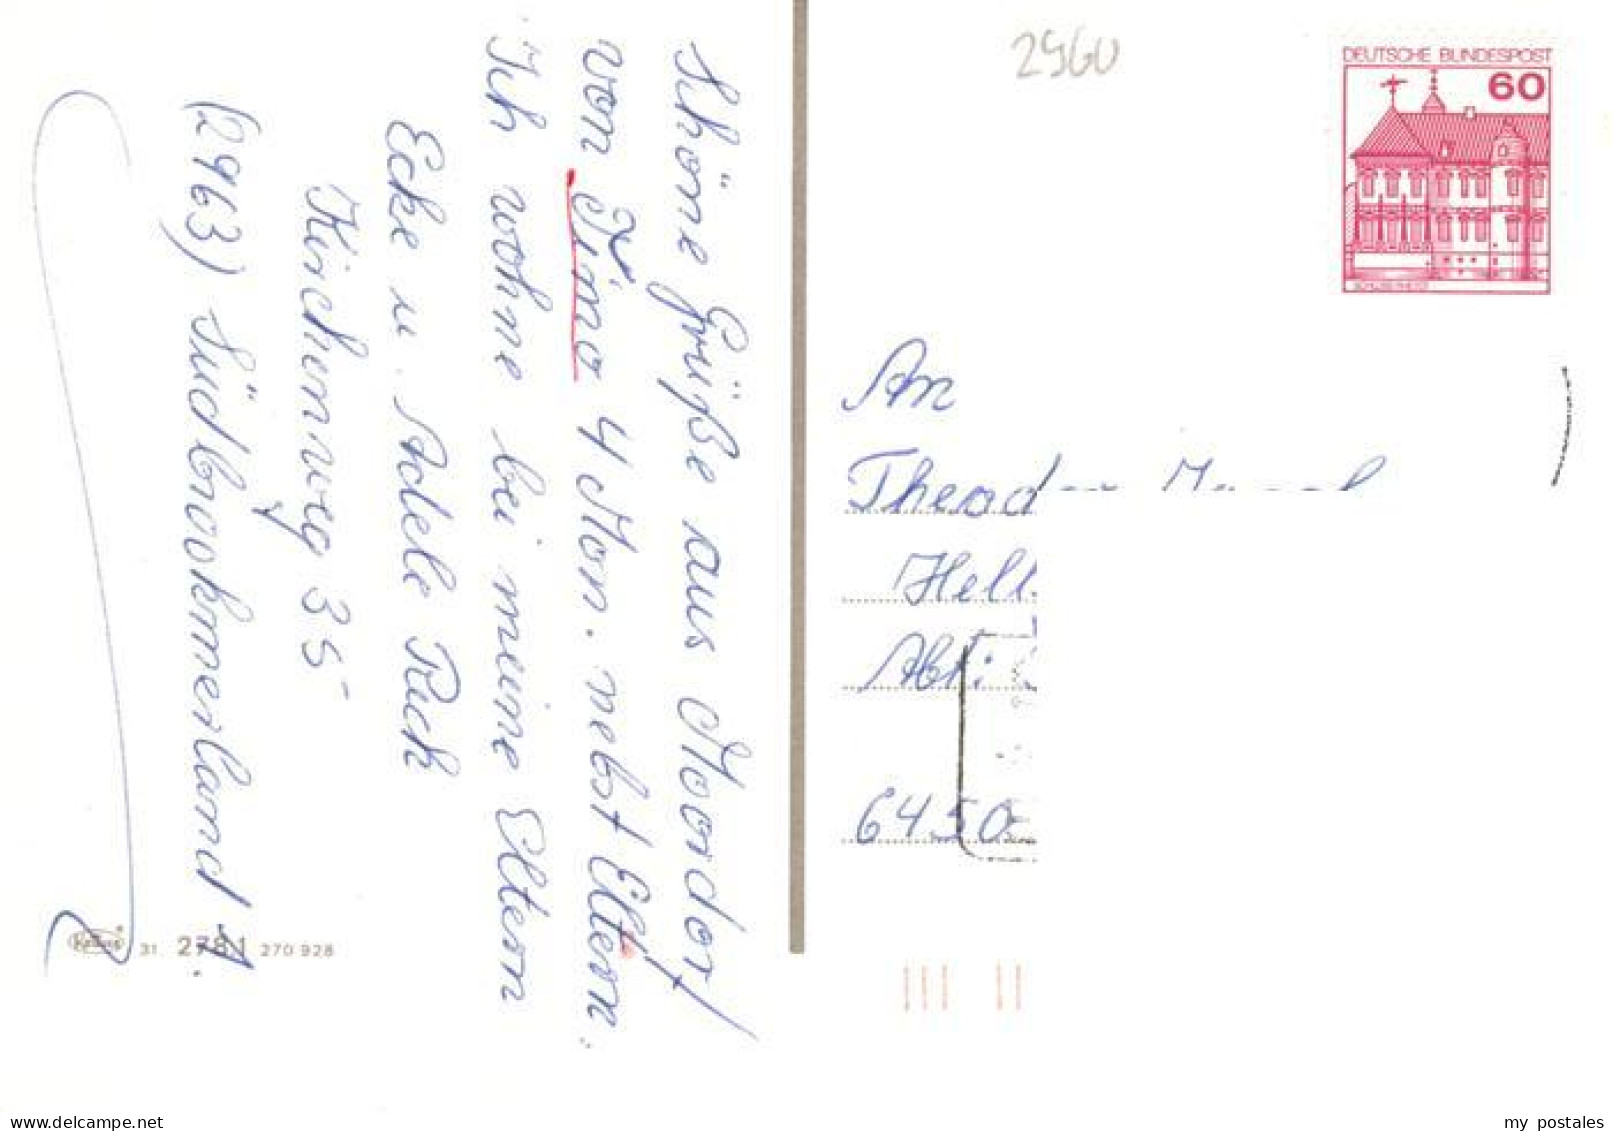 Schöne Grüße aus Moordorf
von Timo 4 Mon. nebst Eltern.
Ich wohne bei meine Eltern
Ecke u. Adele Ruch
Kirchenweg 35
(2963) Südbrookmerland 1.
31 2781 270 928
2960
DEUTSCHE BUNDESPOST
60
An
Theodor
Hell
6450
www.delcampe.net
my_postales